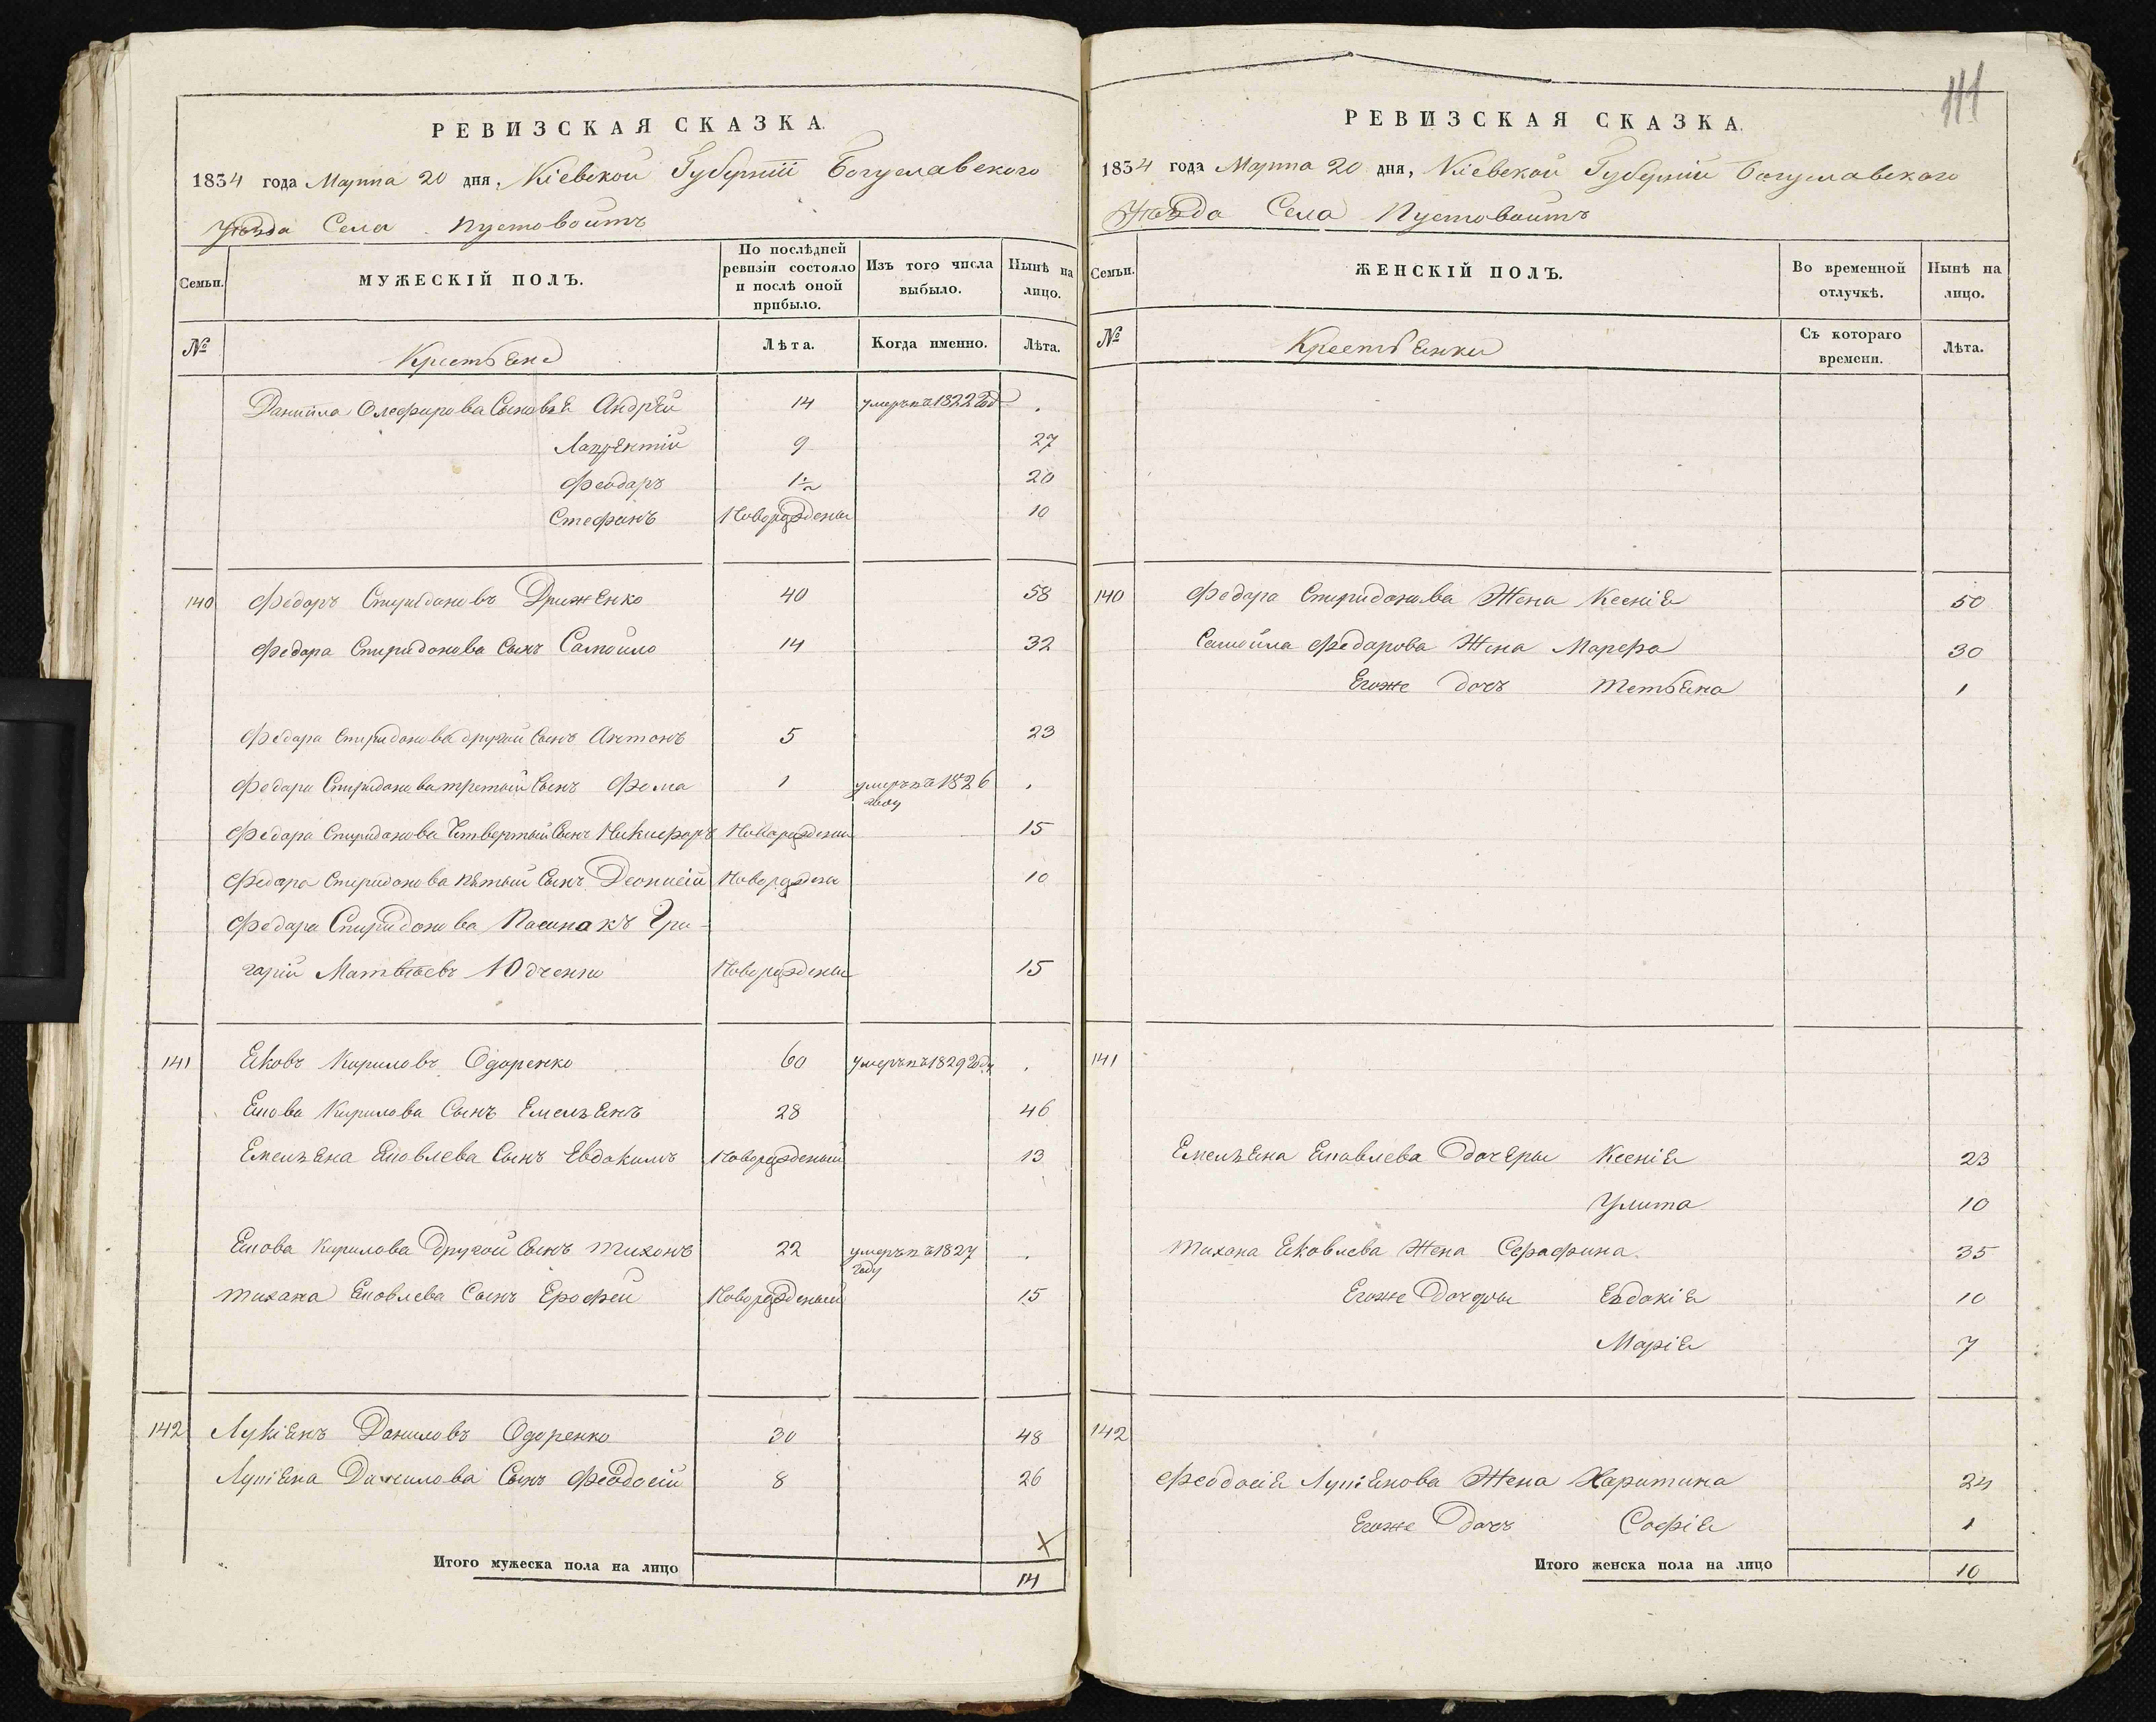 РЕВИЗСКАЯ СКАЗКА.
1834 года Марта 20 дня, Кіевской Губерніи Богуславского
Уѣзда Села Пустовоитъ
Семьи.
МУЖЕСКІЙ ПОЛЪ.
По послѣдней ревизіи состояло и послѣ оной прибыло.
Изъ того числа выбыло.
Нынѣ на лицо.
№
Крестьяне
Лѣта.
Когда именно.
Лѣта.
Данiила Олефирова Сыновья Андрей 14 умеръ въ 1822 год .
Лаврентій 9 27
Феодаръ 1½ 20
Стефанъ Новорожденъ 10
140 Федаръ Спиридоновъ Дриженко 40 58
Федара Спиридонова Сынъ Самойло 14 32
Федара Спиридонова другой Сынъ Антонъ 5 23
Федара Спиридонова третый Сынъ Фома 1 умеръ въ 1826 .
году
Федара Спиридонова Четвертый Сынъ Никифоръ Новорожденъ 15
Федара Спиридонова пятый Сынъ Деонисій Новорожденъ 10
Федара Спиридонова Пасинакъ Гри-
гарій Матвѣевъ Юдченко Новорожденъ 15
141 Яковъ Кириловъ Одаренко 60 умеръ въ 1829 году .
Якова Кирилова Сынъ Емельянъ 28 46
Емельяна Яковлева Сынъ Евдокимъ Новорожденый 13
Якова Кирилова Другой Сынъ Тихонъ 22 умеръ въ 1827 .
году
Тихана Яковлева Сынъ Ерофей Новорожденый 15
142 Лукіянъ Даниловъ Одаренко 30 48
Лукіяна Данилова Сынъ Феодосій 8 26
Итого мужеска пола на лицо 14
111
РЕВИЗСКАЯ СКАЗКА.
1834 года Марта 20 дня, Кіевской Губерніи Богуславского
Уѣзда Села Пустовоитъ
Семьи.
ЖЕНСКІЙ ПОЛЪ.
Во временной отлучкѣ.
Нынѣ на лицо.
№
Крестьянки
Съ котораго времени.
Лѣта.
140 Федара Спиридонова Жена Ксенія 50
Самойла Федарова Жена Марфа 30
Егоже дочь Тетьяна 1
141
Емельяна Яковлева Дочеры Ксенія 23
Улита 10
Тихана Яковлева Жена Серафина 35
Егоже Дочеры Евдокія 10
Марія 7
142
Феодосія Лукіянова Жена Харитина 24
Егоже Дочь Софія 1
Итого женска пола на лицо 10